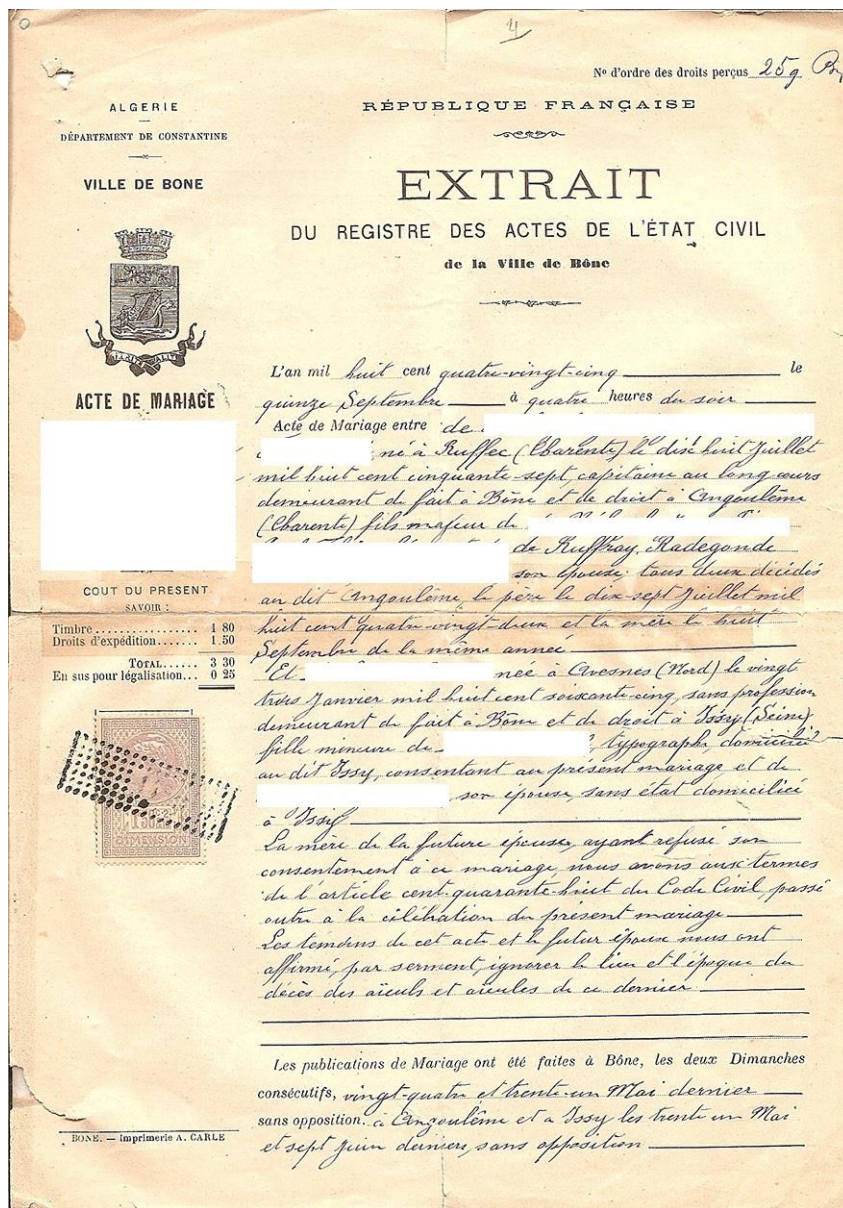 4
N° d'ordre des droits perçus 259
ALGERIE
DÉPARTEMENT DE CONSTANTINE
VILLE DE BONE
ACTE DE MARIAGE
COUT DU PRESENT
SAVOIR :
Timbre................ 1 80
Droits d'expédition....... 1.50
TOTAL...... 3 30
En sus pour légalisation... 0 25
DIMENSION
BONE. — Imprimerie A. CARLE
RÉPUBLIQUE FRANÇAISE
EXTRAIT
DU REGISTRE DES ACTES DE L'ÉTAT CIVIL
de la Ville de Bône
L'an mil huit cent quatre-vingt-cinq le
quinze Septembre à quatre heures du soir
Acte de Mariage entre de
né à Ruffec (Charente) le dix huit Juillet
mil huit cent cinquante-sept, capitaine au long cours
demeurant de fait à Bône et de droit à Angoulême
(Charente) fils majeur de
de Ruffray, Radegonde
son épouse; tous deux décédés
au dit Angoulême le père le dix-sept Juillet mil
huit cent quatre-vingt-deux et la mère le huit
Septembre de la même année
Et née à Avesnes (Nord) le vingt
trois Janvier mil huit cent soixante-cinq, sans profession
demeurant de fait à Bône et de droit à Issy (Seine)
fille mineure de , typographe, domicilié
au dit Issy, consentant au présent mariage, et de
son épouse, sans état domiciliée
à Issy
La mère de la future épouse, ayant refusé son
consentement à ce mariage, nous avons aux termes
de l'article cent-quarante-huit du Code Civil, passé
outre à la célébration du présent mariage
Les témoins de cet acte et le futur époux nous ont
affirmé, par serment, ignorer le lieu et l'époque du
décès des aïeuls et aïeules de ce dernier
Les publications de Mariage ont été faites à Bône, les deux Dimanches
consécutifs, vingt-quatre et trente-un Mai dernier
sans opposition. à Angoulême et à Issy les trente un Mai
et sept Juin derniers, sans opposition